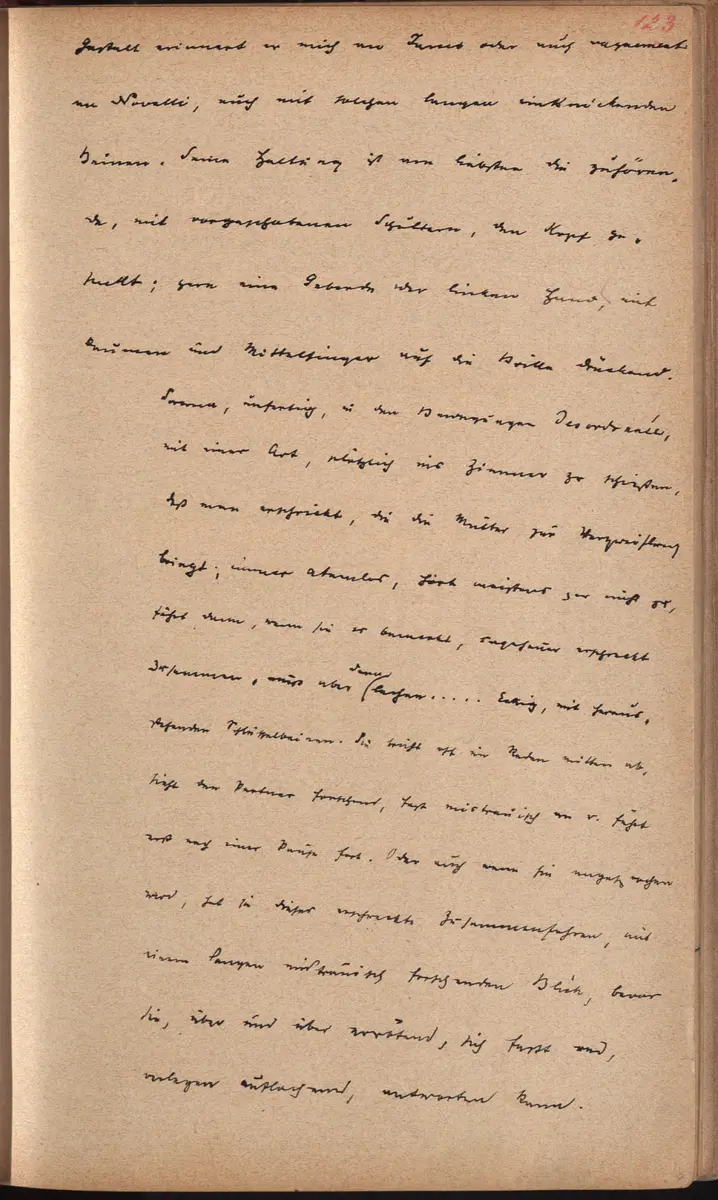 123
Gestalt erinnert er mich an oder auch vaguement
an Novelli, auch mit solchen langen einknickenden
Beinen. Seine Haltung ist am liebsten die zuhören-
de, mit vorgeschobenen Schultern, den Kopf ge-
stellt; gern eine Geberde der linken Hand, mit
Daumen und Mittelfinger auf die Brille drückend.
unfertig, in den Bewegungen
mit einer Art, plötzlich ins Zimmer zu schießen,
daß man erschrickt, die die Mutter zur Verzweiflung
bringt; immer atemlos, hört meistens gar nicht zu,
fährt dann, wenn sie es bemerkt, ungeheuer erschreckt
zusammen, muß aber dann lachen..... Eckig, mit heraus-
stehenden Schlüsselbeinen. Sie bricht oft im Reden mitten ab,
sieht den Partner forschend, fast mistrauisch an u. fährt
erst nach einer Pause fort. Oder auch wenn sie angesprochen
wird, hat sie dieses erschreckte Zusammenfahren, mit
einem langen mistrauisch forschenden Blick, bevor
sie, über und über errötend, sich faßt und,
verlegen auflachend, antworten kann.